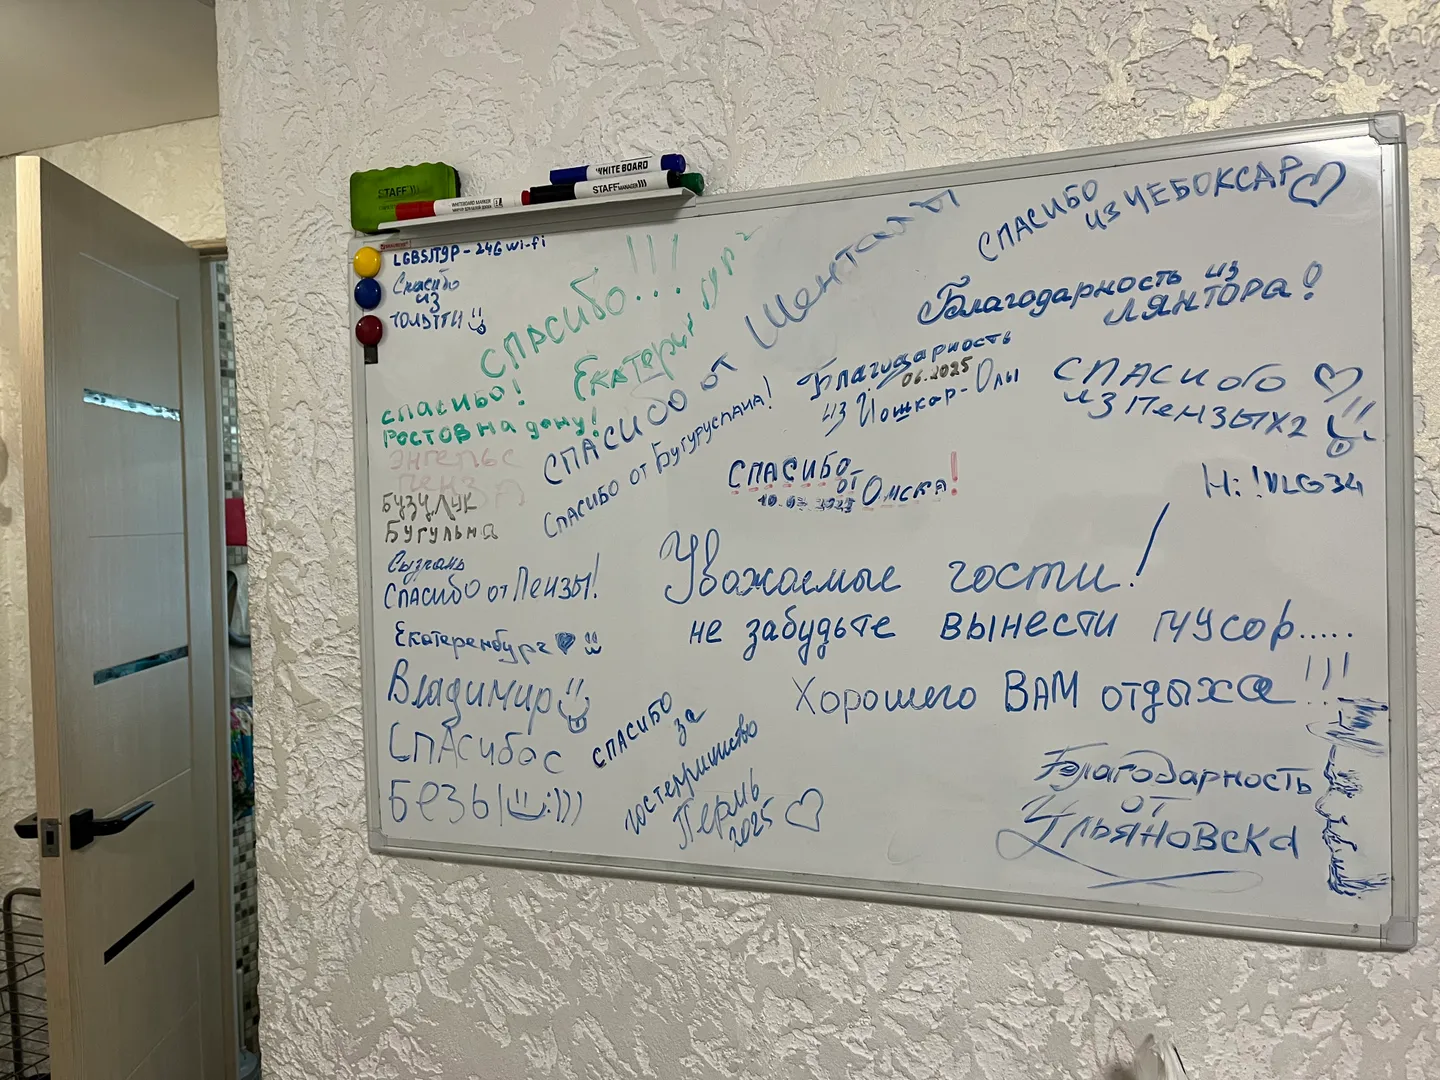 STAFF
WHITEBOARD MARKER
WHITE BOARD
STAFF MANAGER
LGBSJT9P - 24G wi-fi
Спасибо
из
ТОЛЬЯТТИ
СПАСИБО!!!
Екатеринбург
спасибо!
Ростов на дону!
ЭНГЕЛЬС
ПЕНЗ
БУЗУЛУК
БУГУЛЬМА
Сызрань
СПАСИБО от Пензы!
Екатеренбурге
Владимир
СПАСибос
БЕЗЫ :)))
СПАСИБО от Шенталы
СПАСИБО от Бугуруслана!
СПАСИБО
ИЗ ЧЕБОКСАР
Благодарность из
ЛЯНТОРА!
Благодарность
06.2025
из Йошкар-Олы
СПАСИбО
ИЗ ПЕНЗЫ X2
СПАСИБО
ОТ
Омска!
Hi! VLG34
Уважаемые гости!
не забудьте вынести мусор.....
Хорошего ВАМ отдыха!!!
СПАСИБО
за
гостеприимство
Пермь
2025
Благодарность
от
Ульяновска